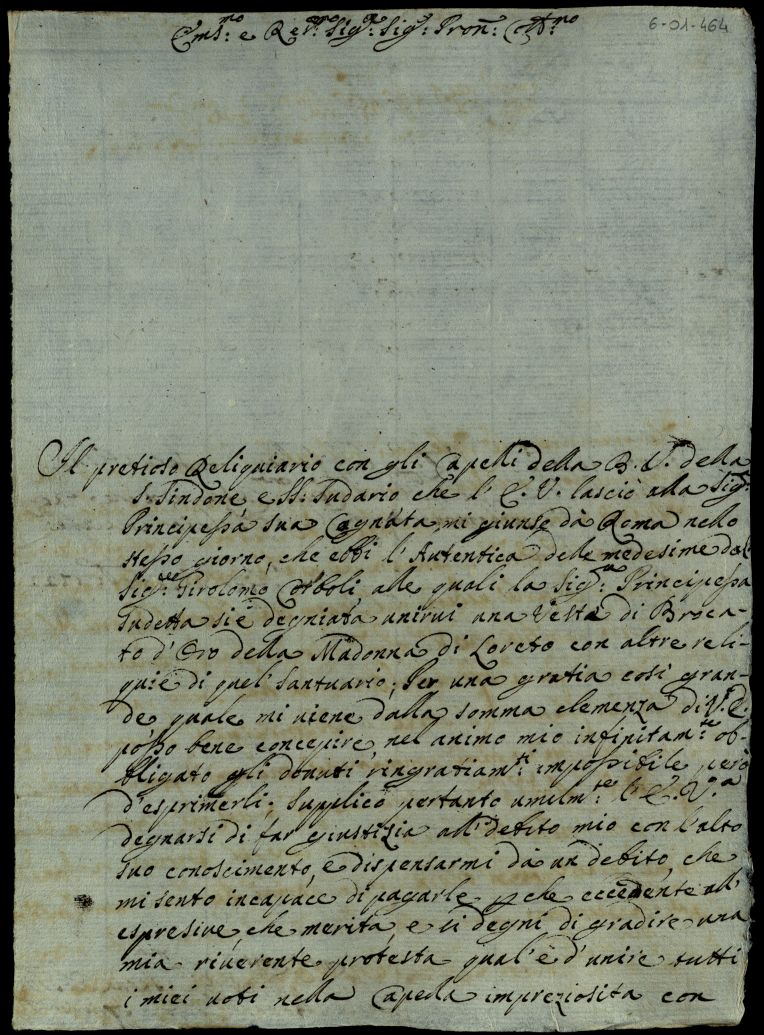 6-01-464
Em.mo e Rev.mo Sig.r Sig.r Pron. Coll.mo
Il pretioso Reliquiario con gli Capelli della B. V. della
S. Sindone, e SS. Sudario che l'E. V. lasciò alla Sig.ra
Principessa sua Cognata, mi giunse da Roma nello
stesso giorno, che ebbi l'Autentica delle medesime dal
Sig.re Girolomo alle quali la Sig.ra Principessa
Sudetta si è degniata unirui una Veste di Broca-
to d'Oro della Madonna di Loreto con altre reli-
quie di quel Santuario; Per una gratia così gran-
de quale mi uiene dalla somma clemenza di V. E.
posso bene concepire, nel animo mio infinitam.te ob-
bligato gli douuti ringratiam.ti impossibile però
d'esprimerli; Supplico pertanto umilm.te l'E. V.a
degnarsi di far giustizia all'debito mio con l'alto
suo conoscimento, e dispensarmi da un debito, che
mi sento incapace di pagarle, p che eccedente all'
espresiue, che merita, e si degni di gradire una
mia riuerente protesta qual'è d'unire tutti
i miei uoti nella Capella impreziosita con